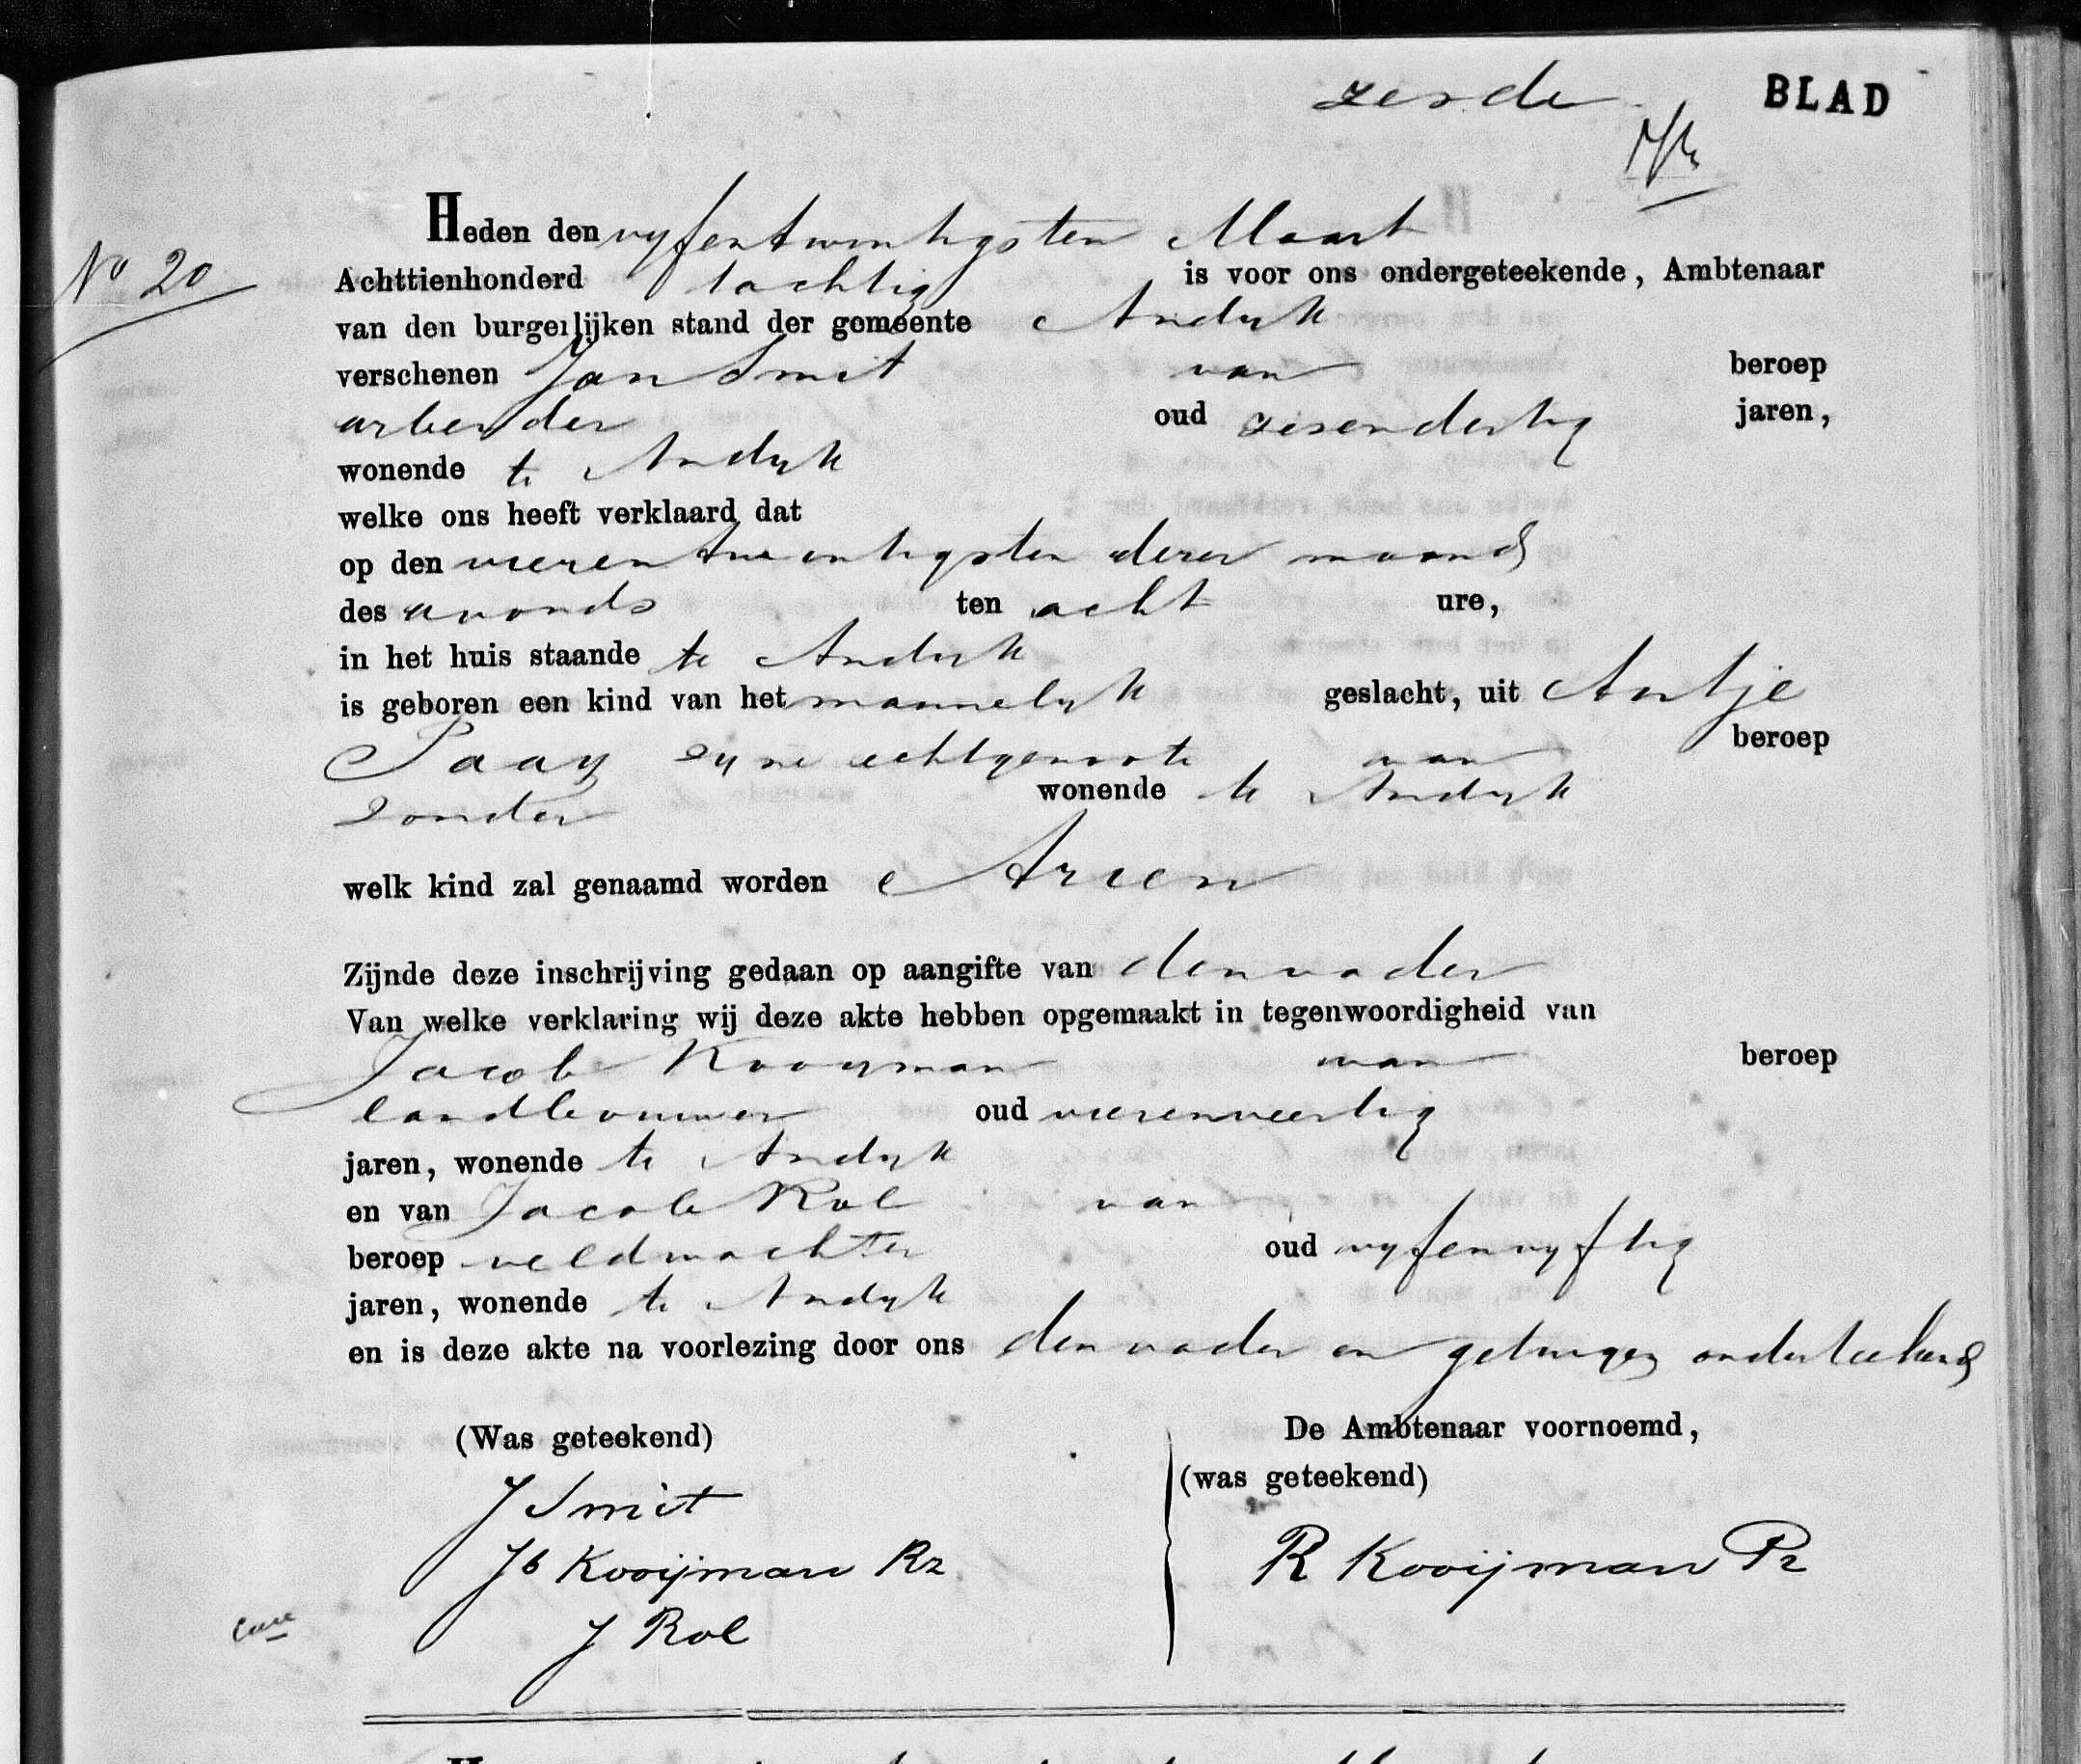 zesde BLAD
No 20
Heden den vyfentwintigsten Maart
Achttienhonderd tachtig is voor ons ondergeteekende, Ambtenaar
van den burgerlijken stand der gemeente Andyk
verschenen Jan Smit van beroep
arbeider oud zesendertig jaren,
wonende te Andyk
welke ons heeft verklaard dat
op den vierentwintigsten dezer maand
des avonds ten acht ure,
in het huis staande te Andyk
is geboren een kind van het mannelyk geslacht, uit Antje
Paay zyne echtgenoote van beroep
zonder wonende te Andyk
welk kind zal genaamd worden Arien
Zijnde deze inschrijving gedaan op aangifte van den vader
Van welke verklaring wij deze akte hebben opgemaakt in tegenwoordigheid van
Jacob Kooyman van beroep
landbouwer oud vierenveertig
jaren, wonende te Andyk
en van Jacob Rol van
beroep veldwachter oud vyfenvyftig
jaren, wonende te Andyk
en is deze akte na voorlezing door ons den vader en getuigen onderteekend
(Was geteekend) De Ambtenaar voornoemd,
(was geteekend)
J Smit
Jb Kooijman Rz R Kooijman Pz
J Rol